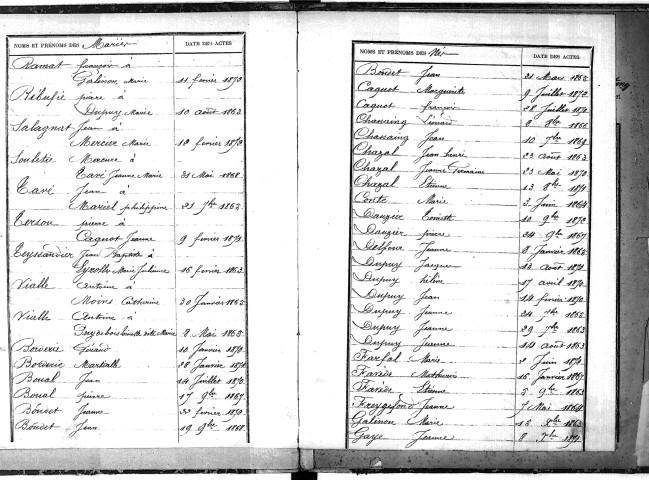 NOMS ET PRÉNOMS DES Mariés DATE DES ACTES
Ramat françois à
Galinon Marie 11 fevrier 1873
Rebufie pierre à
Dupuy Marie 10 août 1863
Salagnat Jean à
Mercier Marie 12 fevrier 1872
Souletie Mercure à
Earé Jeanne Marie 31 Mai 1868
Earé Jean à
Mariel philippine 21 7bre 1865
Terson pierre à
Cagnot Jeanne 9 fevrier 1871
Teyssandier Jean Baptiste à
Eyrolles Marie Julienne 16 fevrier 1863
Vialle Antoine à
Moins Catherine 30 Janvier 1865
Vialle Antoine à
Marie 8 Mai 1865
Borderie Gérard 10 Janvier 1870
Borderie Martial 28 Janvier 1870
Boual Jean 14 Juillet 1870
Boual pierre 17 9bre 1867
Boudet Jeanne 22 fevrier 1870
Boudet Jean 19 9bre 1868
NOMS ET PRÉNOMS DES Nés DATE DES ACTES
Boudet Jean 21 Mars 1865
Cagnot Marguerite 9 Juillet 1872
Cagnot françois 28 Juillet 1870
Chassaing Léonard 8 8bre 1866
Chassaing Jean 10 7bre 1869
Chazal Jean henri 22 août 1863
Chazal Jeanne Germaine 23 Mai 1870
Chazal Etienne 13 8bre 1871
Conte Marie 3 Juin 1864
Dauzier 10 9bre 1872
Dauzier pierre 24 9bre 1867
Delfour Jeanne 8 Janvier 1865
Dupuy Jacques 12 août 1871
Dupuy hélène 17 avril 1870
Dupuy Jean 14 fevrier 1870
Dupuy Jeanne 24 7bre 1866
Dupuy Jeanne 29 9bre 1863
Dupuy Jeanne 14 août 1863
Farfal Marie 2 Juin 1871
Farièr Mathurin 16 Janvier 1867
Farièr Etienne 5 9bre 1863
Freygefond Jeanne 7 Mai 1864
Galinon Marie 15 Xbre 1863
Gaye Jeanne 8 7bre 1871